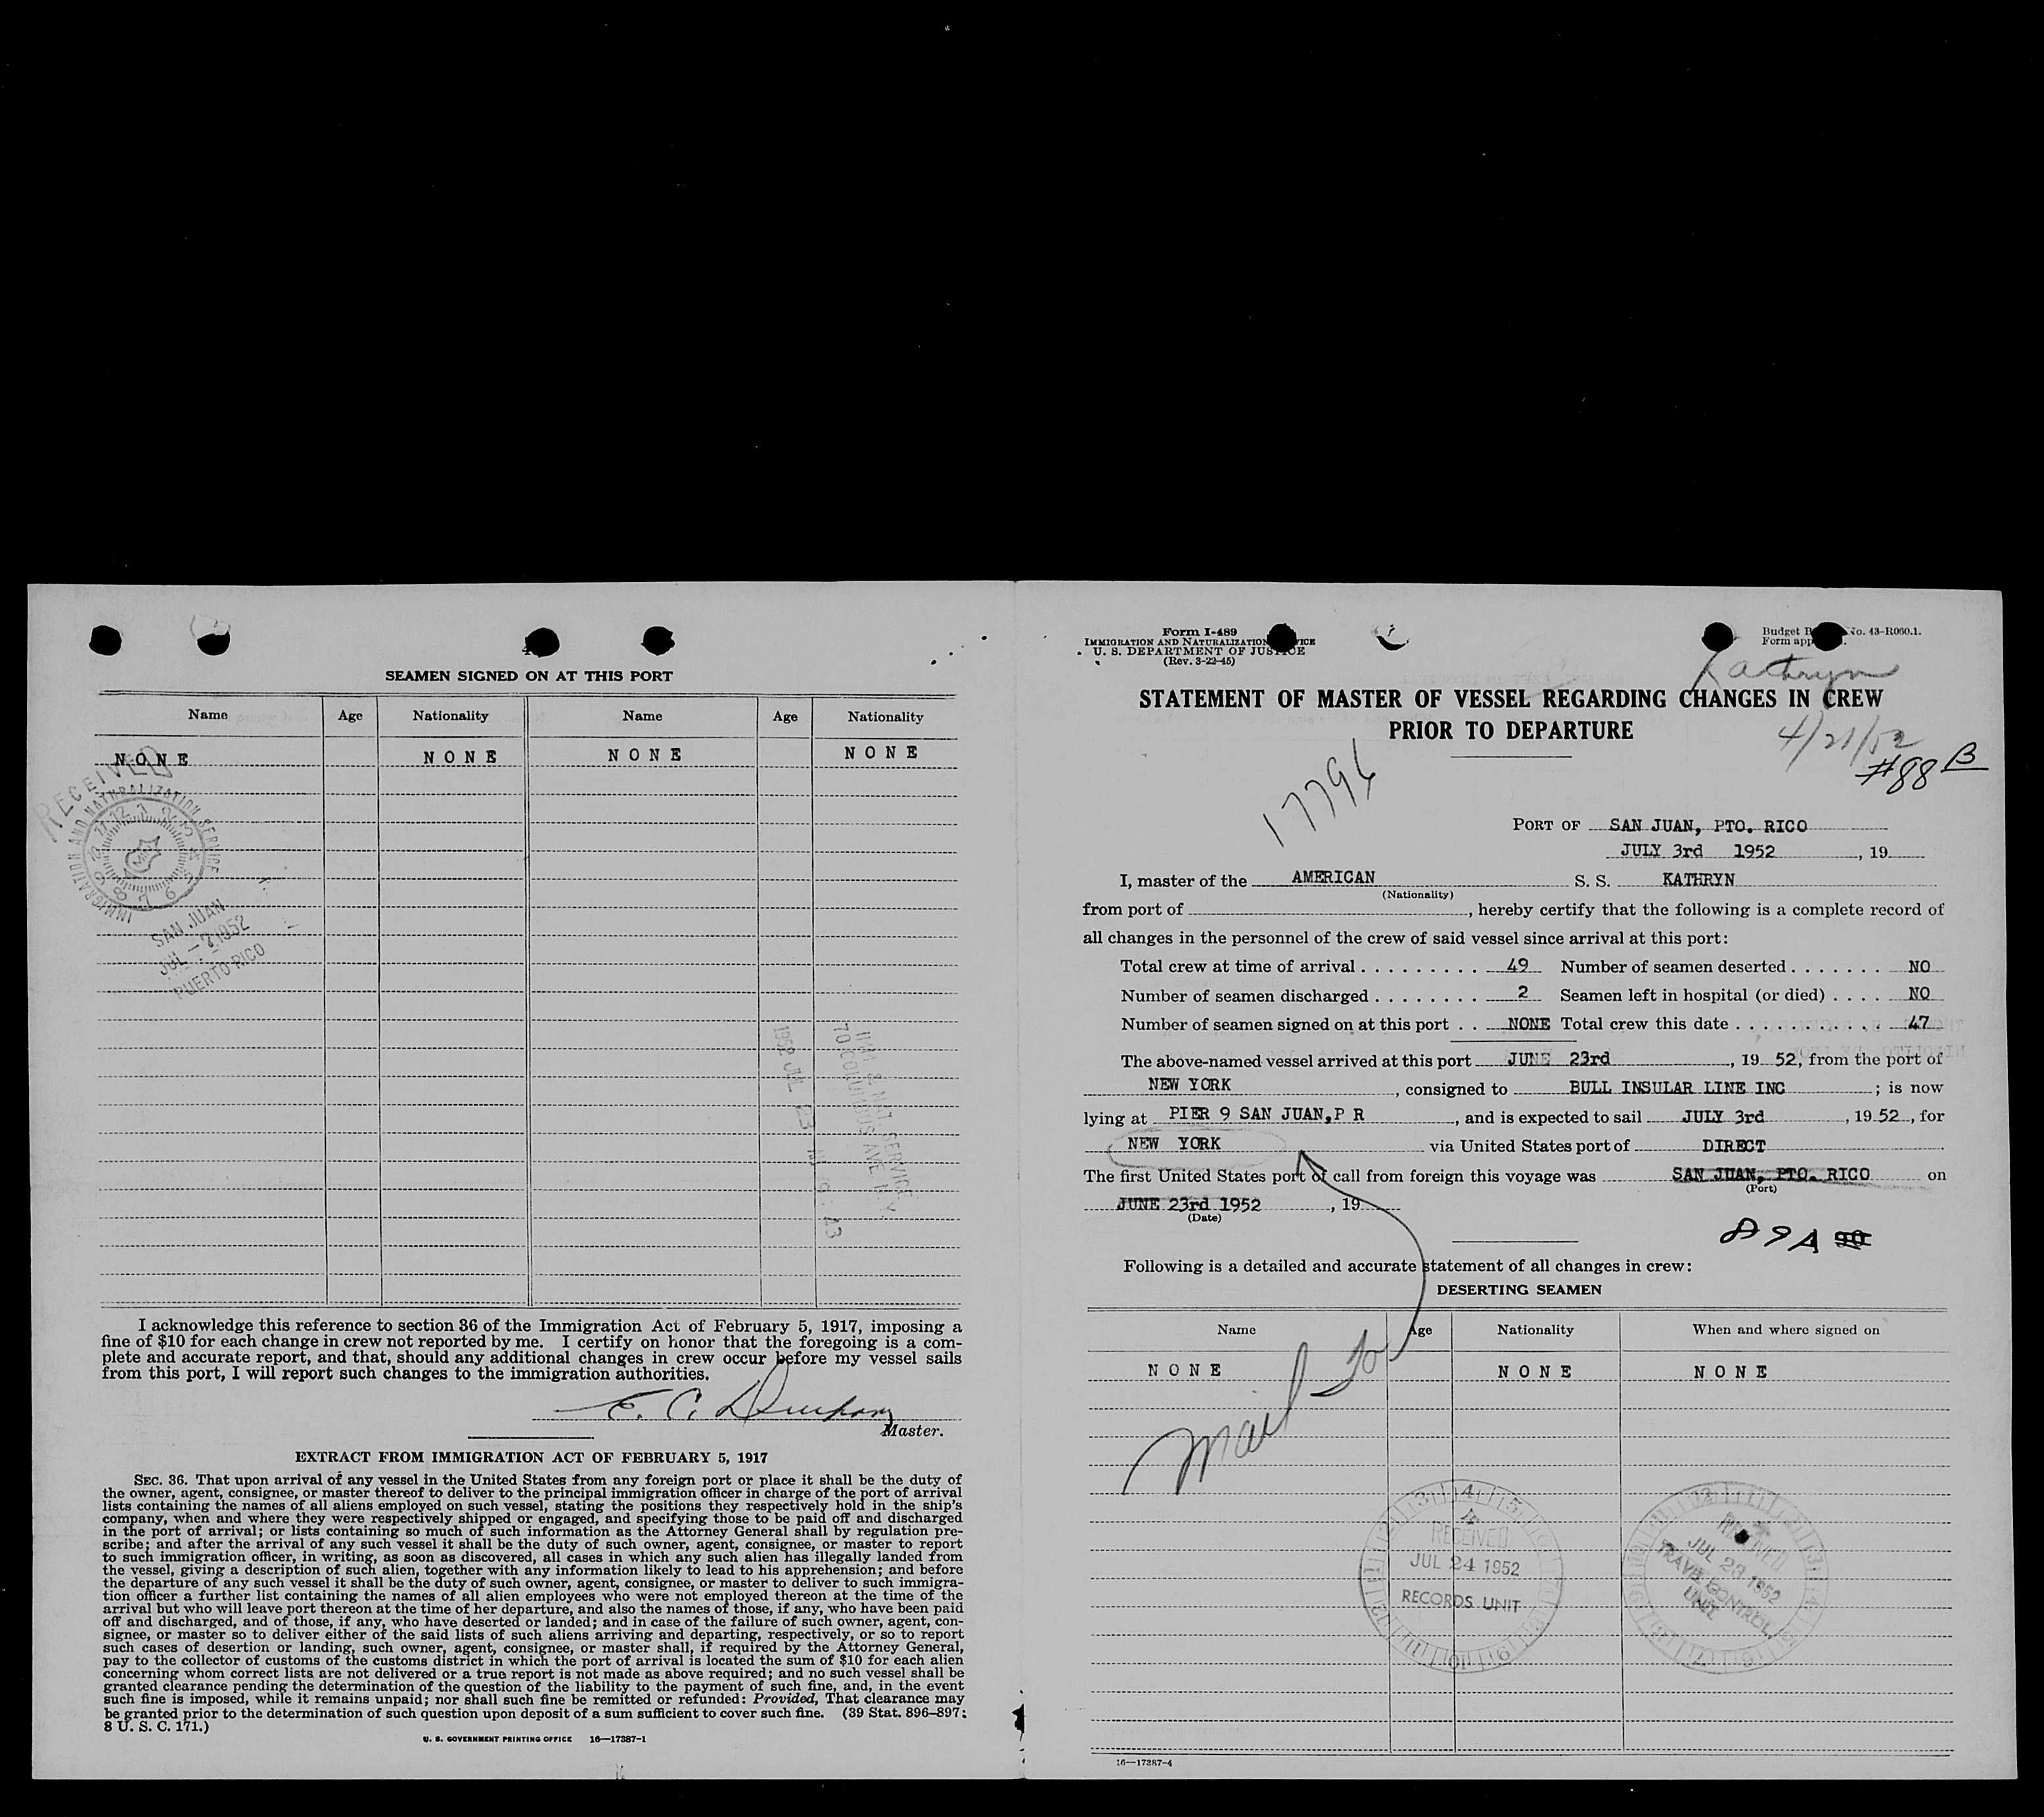 SEAMEN SIGNED ON AT THIS PORT
Name Age Nationality Name Age Nationality
NONE NONE NONE NONE
RECEIVED
IMMIGRATION AND NATURALIZATION SERVICE
SAN JUAN
JUL - 7 1952
PUERTO RICO
IMM & NAT SERVICE
70 COLUMBUS AVE N.Y.
1952 JUL 23
I acknowledge this reference to section 36 of the Immigration Act of February 5, 1917, imposing a
fine of $10 for each change in crew not reported by me. I certify on honor that the foregoing is a com-
plete and accurate report, and that, should any additional changes in crew occur before my vessel sails
from this port, I will report such changes to the immigration authorities.
E. C.
Master.
EXTRACT FROM IMMIGRATION ACT OF FEBRUARY 5, 1917
SEC. 36. That upon arrival of any vessel in the United States from any foreign port or place it shall be the duty of
the owner, agent, consignee, or master thereof to deliver to the principal immigration officer in charge of the port of arrival
lists containing the names of all aliens employed on such vessel, stating the positions they respectively hold in the ship's
company, when and where they were respectively shipped or engaged, and specifying those to be paid off and discharged
in the port of arrival; or lists containing so much of such information as the Attorney General shall by regulation pre-
scribe; and after the arrival of any such vessel it shall be the duty of such owner, agent, consignee, or master to report
to such immigration officer, in writing, as soon as discovered, all cases in which any such alien has illegally landed from
the vessel, giving a description of such alien, together with any information likely to lead to his apprehension; and before
the departure of any such vessel it shall be the duty of such owner, agent, consignee, or master to deliver to such immigra-
tion officer a further list containing the names of all alien employees who were not employed thereon at the time of the
arrival but who will leave port thereon at the time of her departure, and also the names of those, if any, who have been paid
off and discharged, and of those, if any, who have deserted or landed; and in case of the failure of such owner, agent, con-
signee, or master so to deliver either of the said lists of such aliens arriving and departing, respectively, or so to report
such cases of desertion or landing, such owner, agent, consignee, or master shall, if required by the Attorney General,
pay to the collector of customs of the customs district in which the port of arrival is located the sum of $10 for each alien
concerning whom correct lists are not delivered or a true report is not made as above required; and no such vessel shall be
granted clearance pending the determination of the question of the liability to the payment of such fine, and, in the event
such fine is imposed, while it remains unpaid; nor shall such fine be remitted or refunded: Provided, That clearance may
be granted prior to the determination of such question upon deposit of a sum sufficient to cover such fine. (39 Stat. 896–897;
8 U. S. C. 171.)
U. S. GOVERNMENT PRINTING OFFICE 16—17387-1
Form I-489
IMMIGRATION AND NATURALIZATION SERVICE
U. S. DEPARTMENT OF JUSTICE
(Rev. 3-22-45)
Budget No. 43-R060.1.
Form
Kathryn
STATEMENT OF MASTER OF VESSEL REGARDING CHANGES IN CREW
PRIOR TO DEPARTURE
4/21/52
#88 B
17796
PORT OF SAN JUAN, PTO. RICO
JULY 3rd 1952, 19
I, master of the AMERICAN S. S. KATHRYN
(Nationality)
from port of , hereby certify that the following is a complete record of
all changes in the personnel of the crew of said vessel since arrival at this port:
Total crew at time of arrival . . . . . . . . . 49 Number of seamen deserted . . . . . . . NO
Number of seamen discharged . . . . . . . . 2 Seamen left in hospital (or died) . . . . NO
Number of seamen signed on at this port . . NONE Total crew this date . . . . . . . . . . . 47
The above-named vessel arrived at this port JUNE 23rd, 19 52, from the port of
NEW YORK, consigned to BULL INSULAR LINE INC; is now
lying at PIER 9 SAN JUAN,P R, and is expected to sail JULY 3rd, 19 52, for
NEW YORK via United States port of DIRECT
The first United States port of call from foreign this voyage was SAN JUAN, PTO. RICO on
(Port)
JUNE 23rd 1952, 19
(Date)
89A
Following is a detailed and accurate statement of all changes in crew:
DESERTING SEAMEN
Name Age Nationality When and where signed on
NONE NONE NONE
Mail to
RECEIVED
JUL 24 1952
RECORDS UNIT
RECEIVED
JUL 23 1952
TRAVEL CONTROL
UNIT
16—17387-4